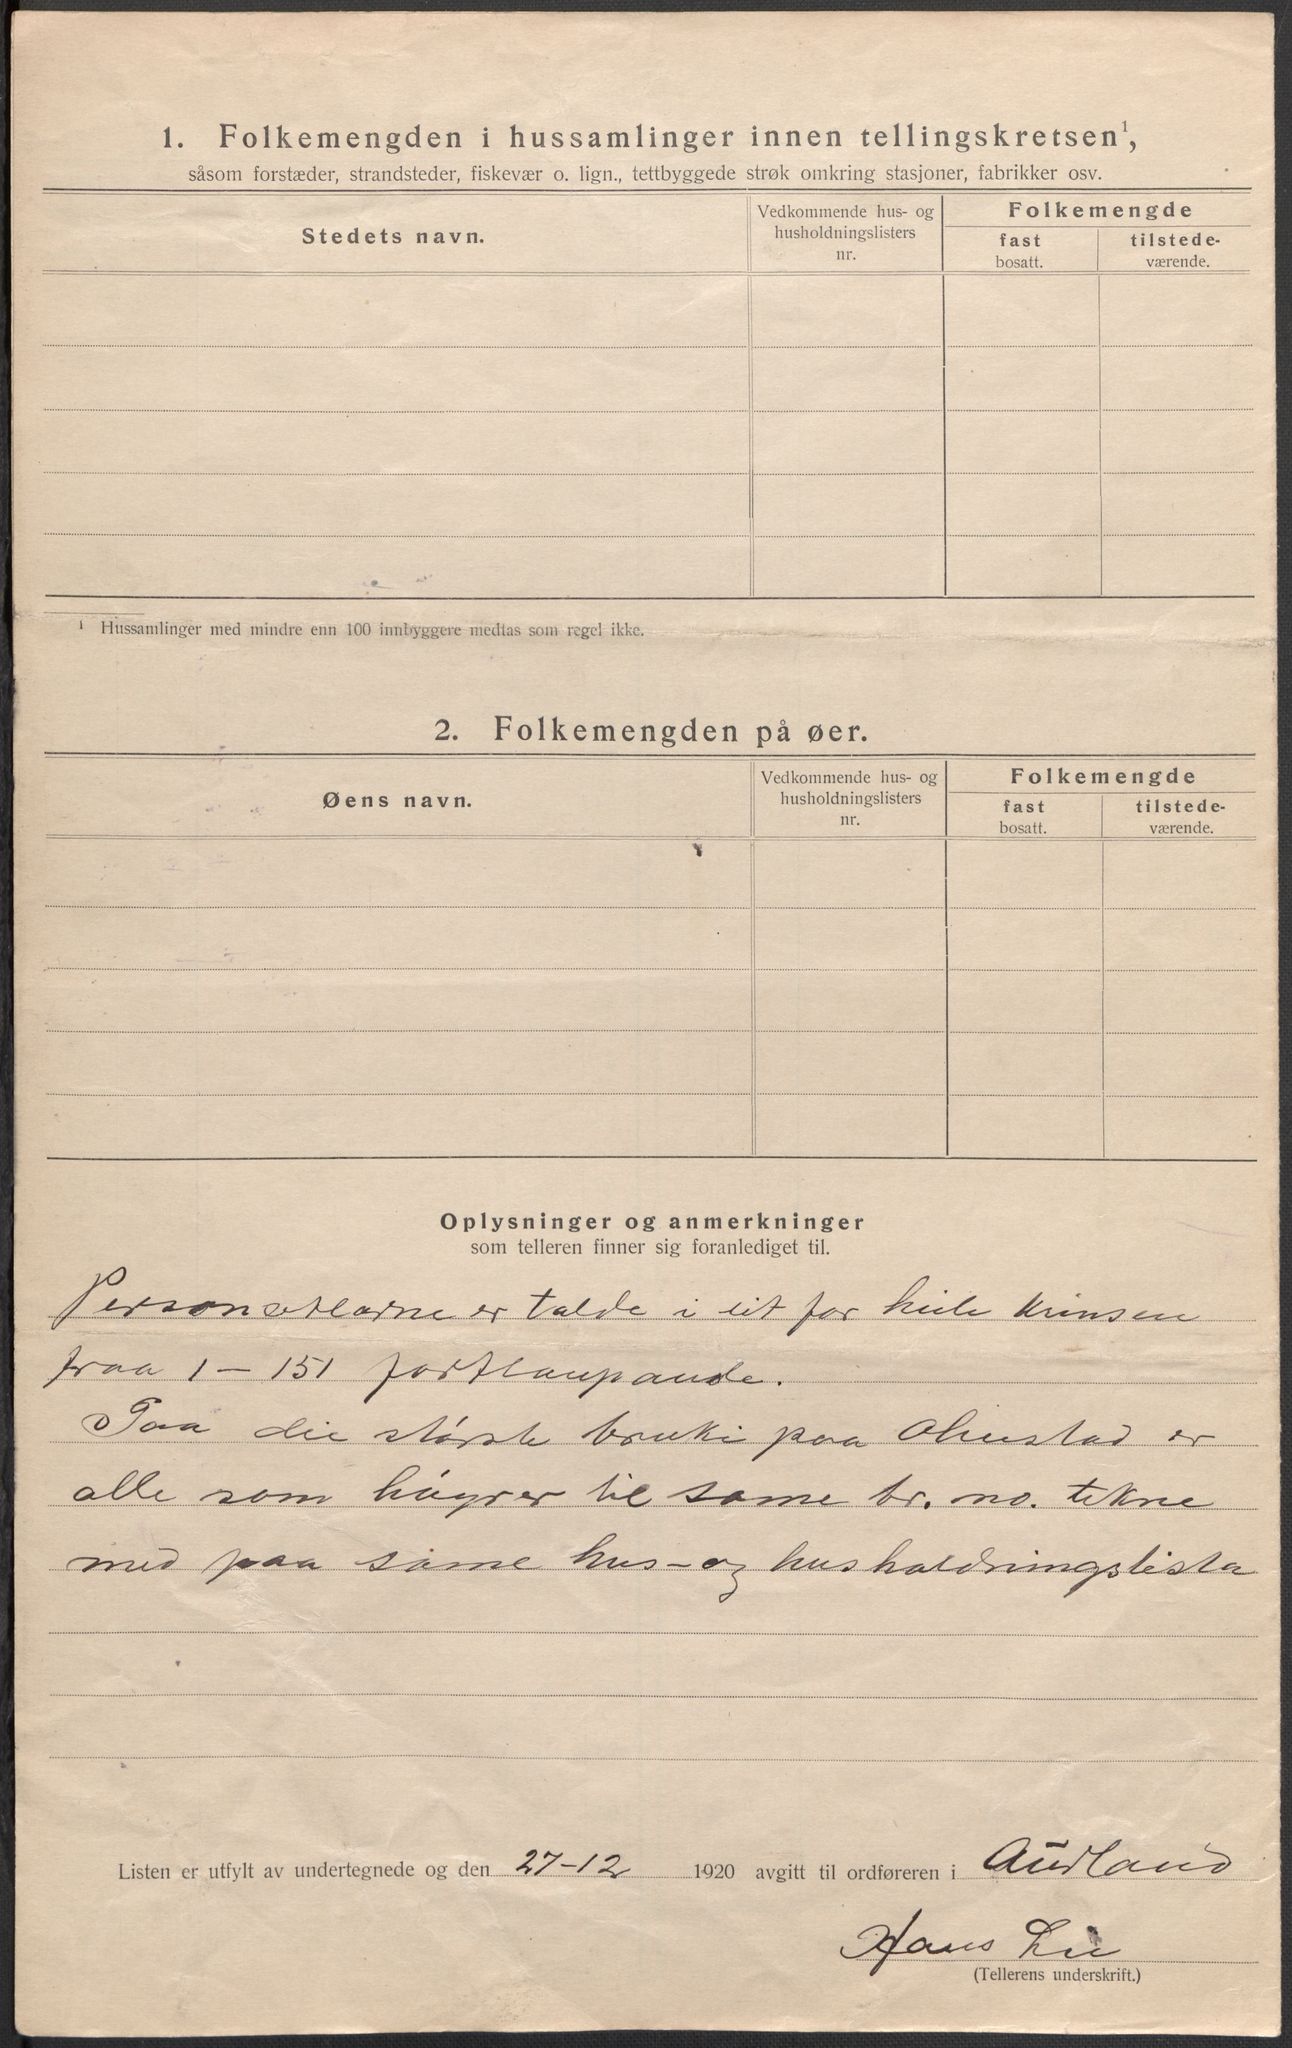 1. Folkemengden i hussamlinger innen tellingskretsen¹,
såsom forstæder, strandsteder, fiskevær o. lign., tettbyggede strøk omkring stasjoner, fabrikker osv.
Stedets navn.
Vedkommende hus- og
husholdningslisters
nr.
Folkemengde
fast
bosatt.
tilstede-
værende.
¹ Hussamlinger med mindre enn 100 innbyggere medtas som regel ikke.
2. Folkemengden på øer.
Øens navn.
Vedkommende hus- og
husholdningslisters
nr.
Folkemengde
fast
bosatt.
tilstede-
værende.
Oplysninger og anmerkninger
som telleren finner sig foranlediget til.
Personsetlarne er talde i eit for heile krinsen
fraa 1 – 151 fortlaupande.
Paa dei største bruki paa Ohnstad er
alle som høyrer til same br. no. tekne
med paa same hus- og husholdningslista
Listen er utfylt av undertegnede og den 27-12 1920 avgitt til ordføreren i Aurland
Hans Lie
(Tellerens underskrift.)